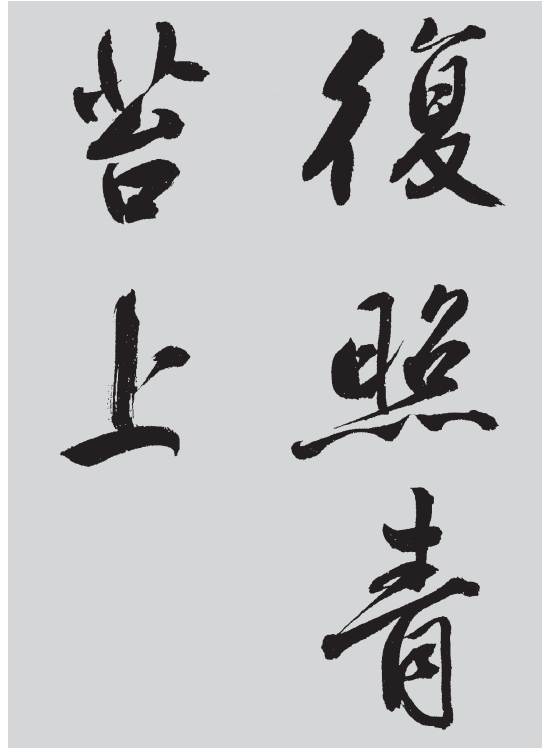 復照青
苔上